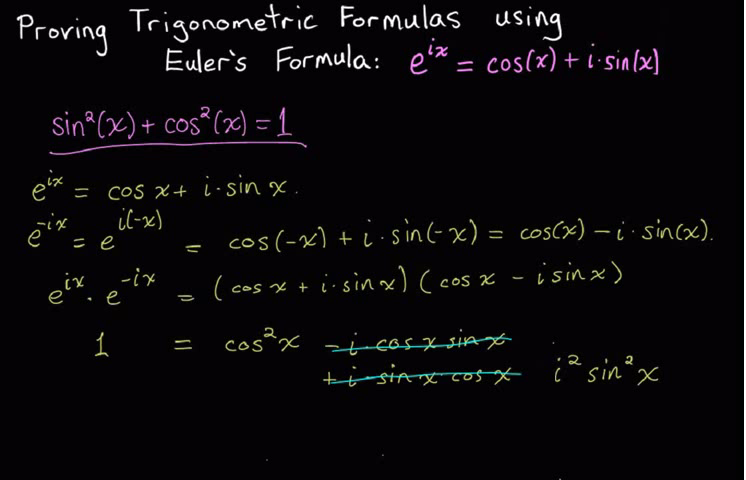 Proving Trigonometric Formulas using
Euler's Formula: e^{ix} = cos(x) + i·sin(x)
sin²(x) + cos²(x) = 1
e^{ix} = cos x + i·sin x.
e^{-ix} = e^{i(-x)} = cos(-x) + i·sin(-x) = cos(x) - i·sin(x).
e^{ix} · e^{-ix} = (cos x + i·sin x)(cos x - i sin x)
1 = cos²x - i·cos x sin x
+ i·sin x·cos x i² sin² x